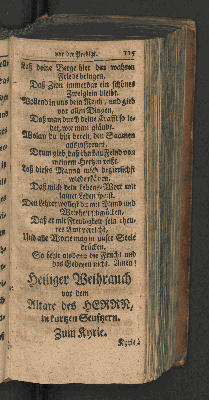 vor der Predigt. 115
Laß deine Berge hier den wahren
Friede bringen,
Daß Zion immerdar ein schönes
Zweiglein bleibt.
Vollend in uns dein Reich, und gieb
vor allen Dingen,
Daß man durch deine Krafft so le-
bet, wie man gläubt.
Wolan du bist bereit, den Saamen
auszustreuen,
Drum gieb daß ihn kein Feind von
meinem Hertzen reißt.
Laß dieses Manna mich
Daß mich dein Lebens-Wort mit
lauter Leben speißt.
Den Lehrer wollest du mit Mund und
Weisheit schmücken,
Daß er mit Freudigkeit sein theu-
res Amt verricht,
Und alle Worte mag in unser Seele
drücken,
So fehlt alsdann die Frucht und
das Gedeyen nicht. Amen!
Heiliger Weihrauch
vor dem
Altare des HERRN,
in kurtzen Seufzern.
Zum Kyrie.
Kyrie,